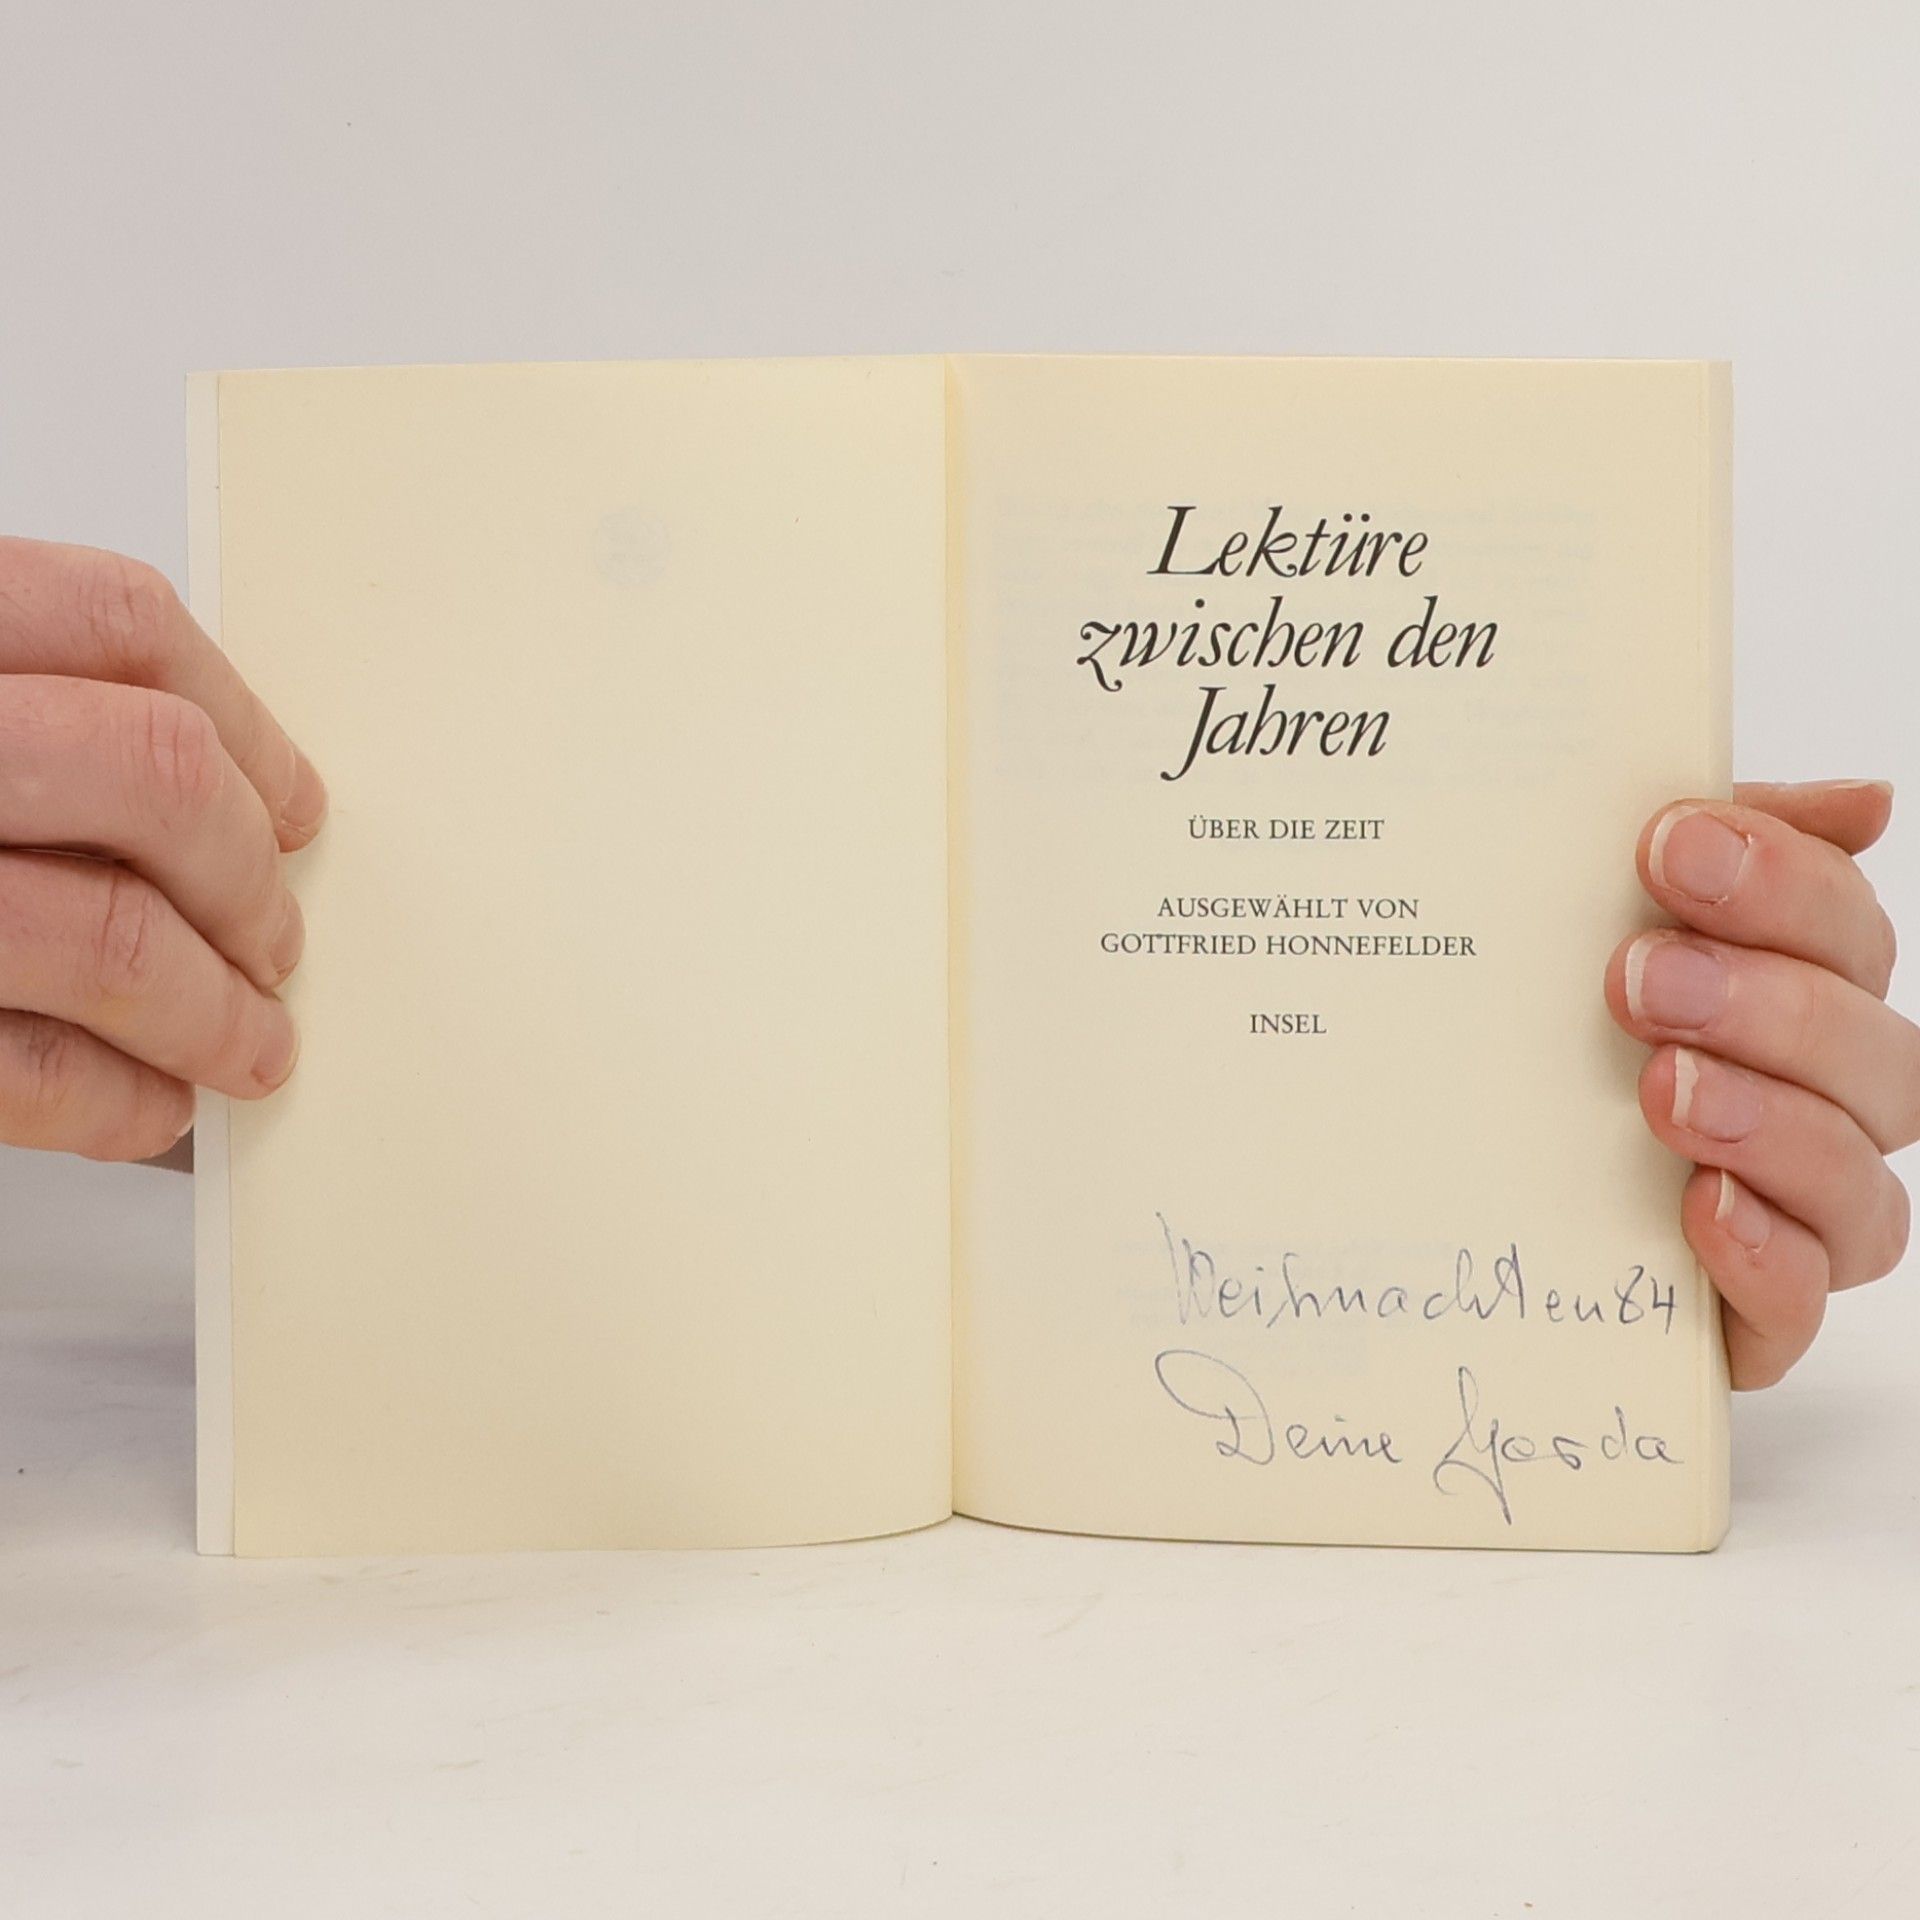 Lektüre
zwischen den
Jahren
ÜBER DIE ZEIT
AUSGEWÄHLT VON
GOTTFRIED HONNEFELDER
INSEL
Weihnachten 84
Deine Gerda